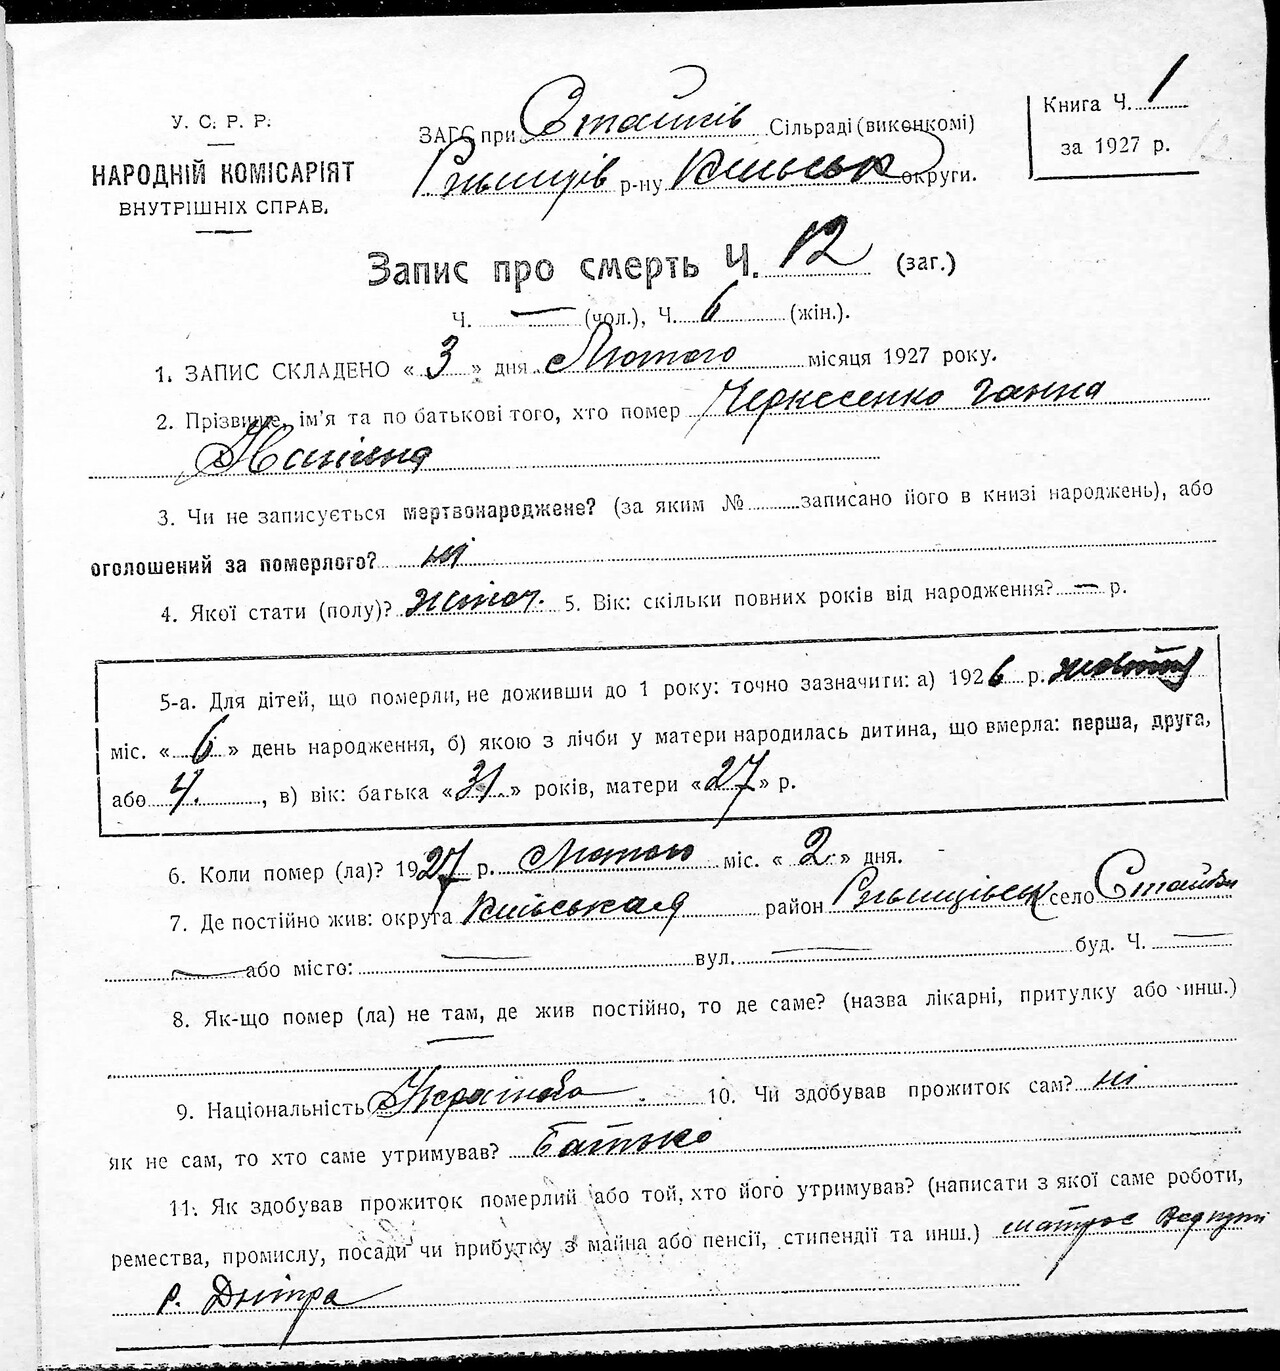 У. С. Р. Р.
НАРОДНІЙ КОМІСАРІЯТ
ВНУТРІШНІХ СПРАВ.
ЗАГС при Стайків Сільраді (виконкомі)
Ржищів р-ну Київськ округи.
Книга Ч. 1
за 1927 р.
Запис про смерть Ч. 12 (заг.)
Ч. — (чол.), Ч. 6 (жін.).
1. ЗАПИС СКЛАДЕНО « 3 » дня Лютого місяця 1927 року.
2. Прізвище, ім'я та по батькові того, хто помер Черкесенко Ганна
3. Чи не записується мертвонароджене? (за яким № записано його в книзі народжень), або
оголошений за померлого? ні
4. Якої стати (полу)? жіноч. 5. Вік: скільки повних років від народження? — р.
5-а. Для дітей, що померли, не доживши до 1 року: точно зазначити: а) 1926 р.
міс. « 6 » день народження, б) якою з лічби у матери народилась дитина, що вмерла: перша, друга,
або 4. , в) вік: батька « 31. » років, матери « 27 » р.
6. Коли помер (ла)? 1927 р. Лютого міс. « 2 » дня.
7. Де постійно жив: округа Київська район Ржищівськ село Стайки
— або місто: — вул. — буд. Ч. —
8. Як-що помер (ла) не там, де жив постійно, то де саме? (назва лікарні, притулку або инш.)
—
9. Національність Українка 10. Чи здобував прожиток сам? ні
як не сам, то хто саме утримував? Батько
11. Як здобував прожиток померлий або той, хто його утримував? (написати з якої саме роботи,
ремества, промислу, посади чи прибутку з майна або пенсії, стипендії та инш.) матрос
р. Дніпра